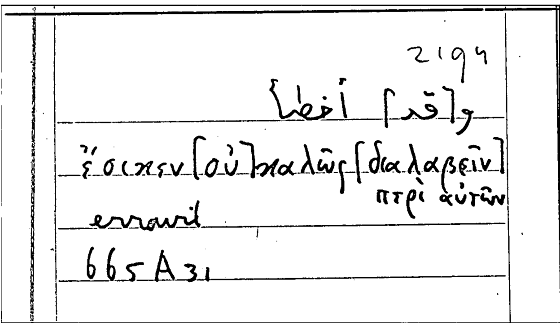 2194
و[قد] أخطأ
ἔοικεν [οὐ] καλῶς [διαλαβεῖν]
περὶ αὐτῶν
erravit
665 A 31